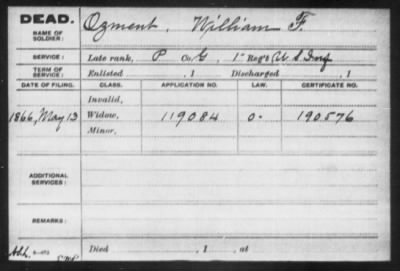 DEAD.
NAME OF SOLDIER: Ozment, William F.
SERVICE: Late rank, P Co. G, 1" Reg't U. S. Inf
TERM OF SERVICE: Enlisted , 1 Discharged , 1
DATE OF FILING. CLASS. APPLICATION NO. LAW. CERTIFICATE NO.
Invalid,
1866, May 13 Widow, 119084 0. 190576
Minor,
ADDITIONAL SERVICES:
REMARKS:
Died , 1 , at